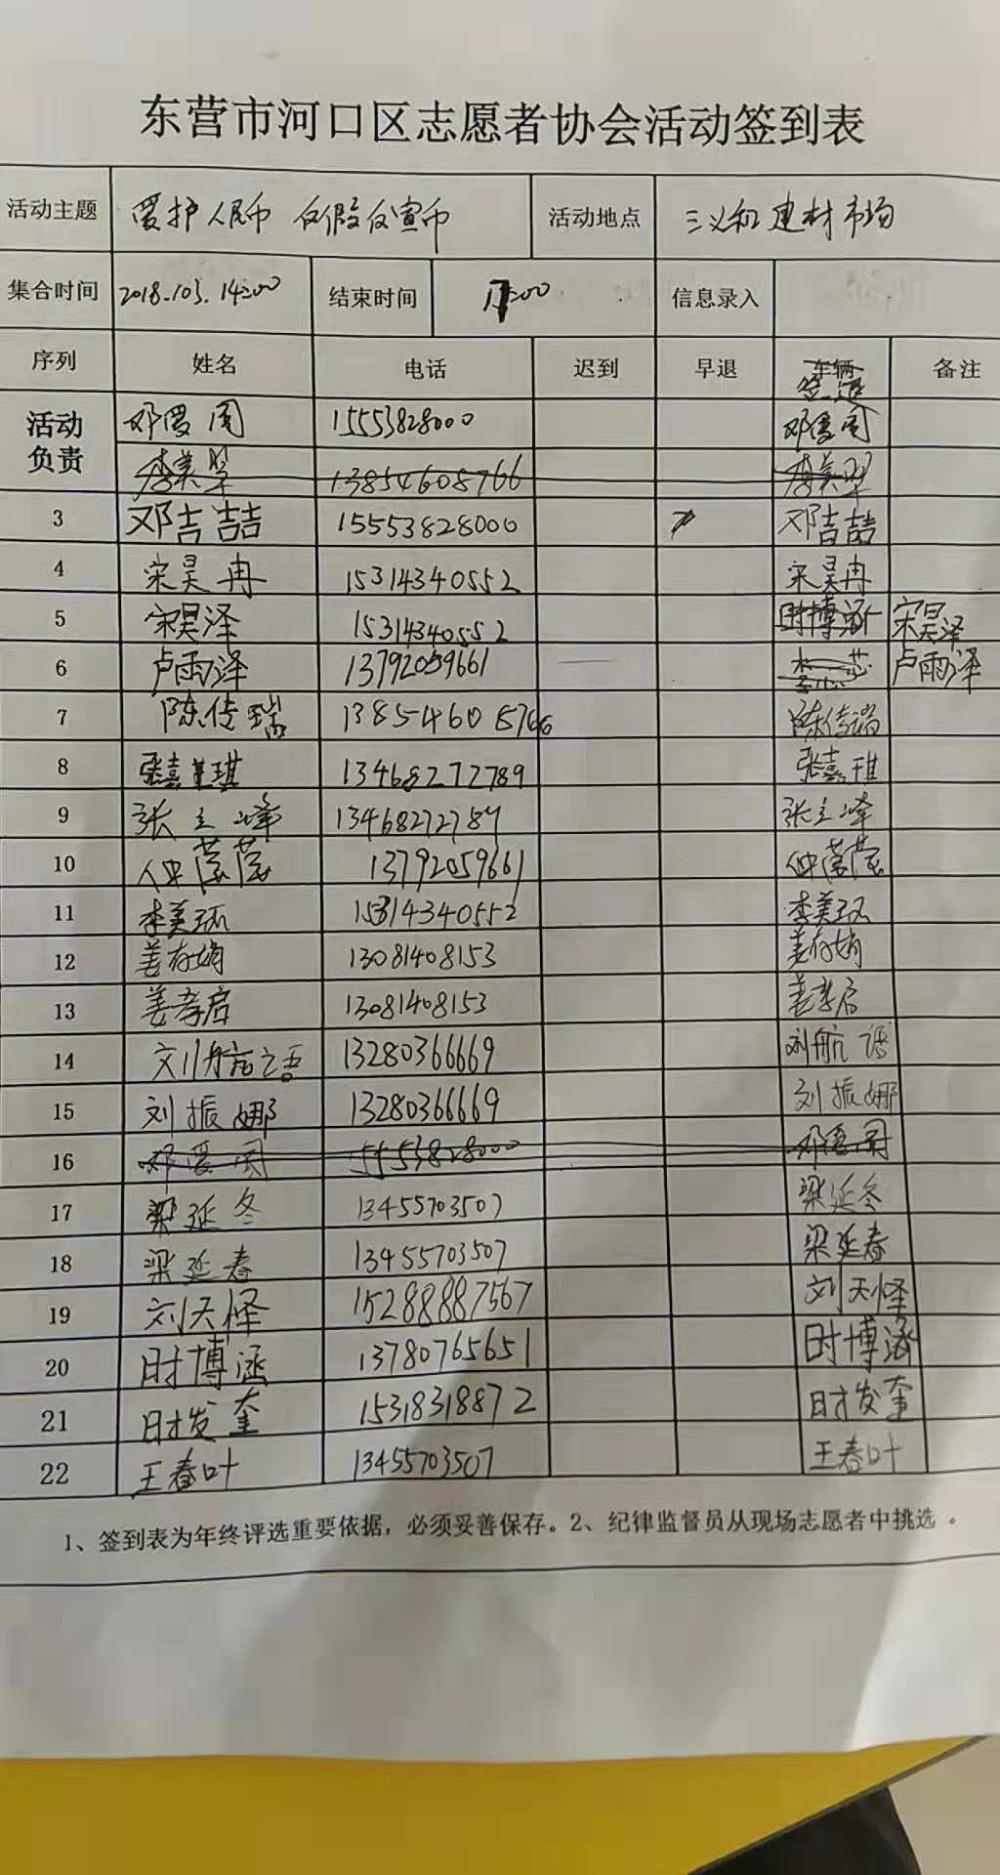 东营市河口区志愿者协会活动签到表
活动主题 爱护人民币 反假反宣币 活动地点 三义和建材市场
集合时间 2018.103.14:00 结束时间 17:00 信息录入
序列 姓名 电话 迟到 早退 车辆 签退 备注
活动负责 邓爱国 15553828000 邓爱国
李美翠 13854608766 李美翠
3 邓吉喆 15553828000 邓吉喆
4 宋昊冉 15314340552 宋昊冉
5 宋昊泽 15314340552 时博涵 宋昊泽
6 卢雨泽 13792059661 卢雨泽
7 陈传瑞 13854608766 陈传瑞
8 张嘉琪 13468272789 张嘉琪
9 张立峰 13468272789 张立峰
10 仲莹莹 13792059661 仲莹莹
11 李美环 15314340552 李美环
12 姜存娟 13081408153 姜存娟
13 姜孝启 13081408153 姜孝启
14 刘航语 13280366669 刘航语
15 刘振娜 13280366669 刘振娜
16 邓爱国 15553828000 邓爱国
17 梁延冬 13455703507 梁延冬
18 梁延春 13455703507 梁延春
19 刘天怿 15288887567 刘天怿
20 时博涵 13780765651 时博涵
21 时发奎 15318318872 时发奎
22 王春叶 13455703507 王春叶
1、签到表为年终评选重要依据，必须妥善保存。2、纪律监督员从现场志愿者中挑选。